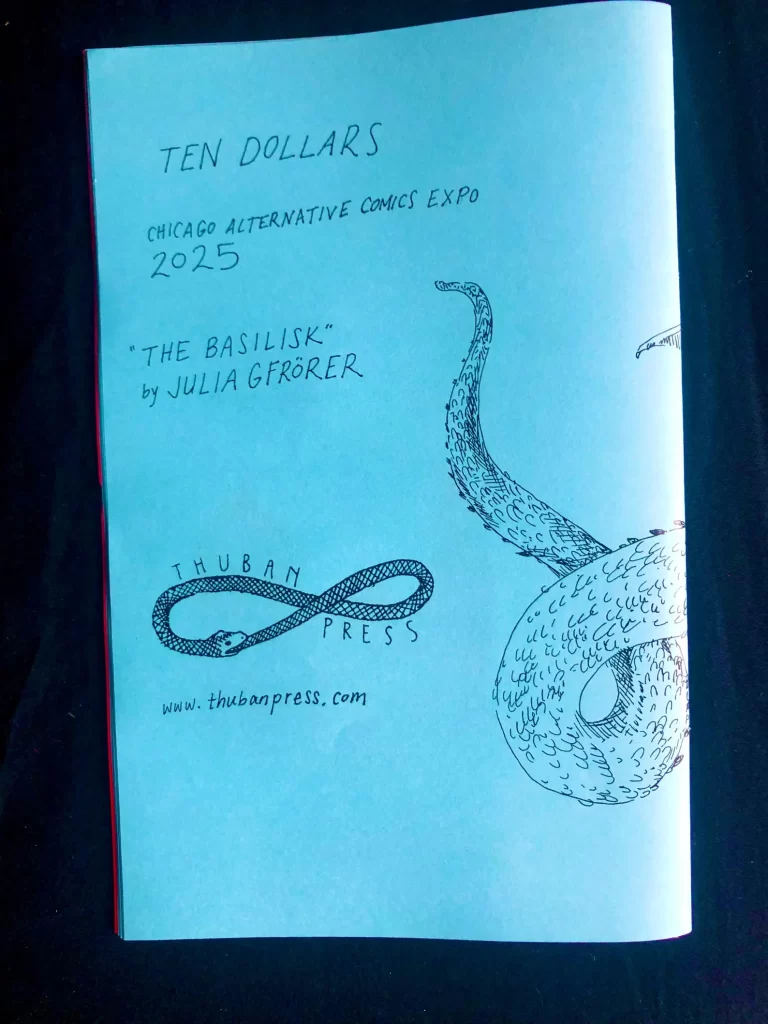 TEN DOLLARS
CHICAGO ALTERNATIVE COMICS EXPO
2025
"THE BASILISK"
by JULIA GFRÖRER
THUBAN
PRESS
www.thubanpress.com